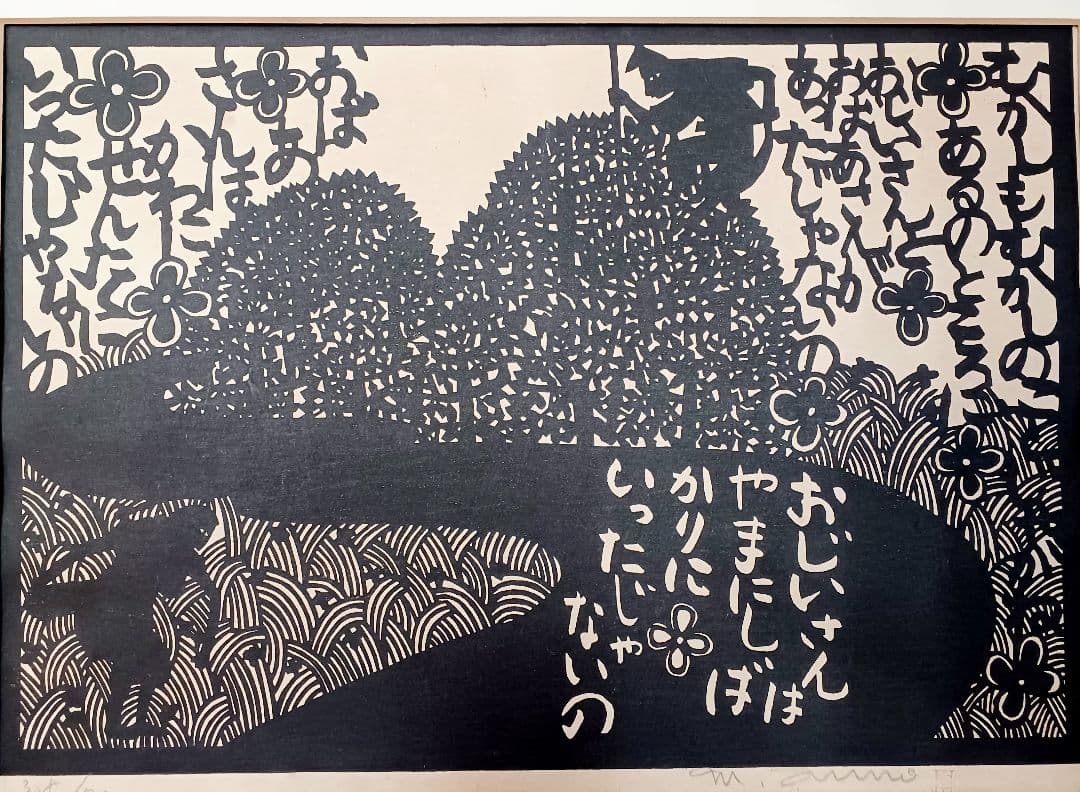 むかしもむかしの
あるのところ
おじいさんと
おばあさんが
あったじゃないの
おじいさんは
やまにしば
かりに
いったじゃ
ないの
おば
あ
さんは
かわに
せんたくに
いったじゃないの